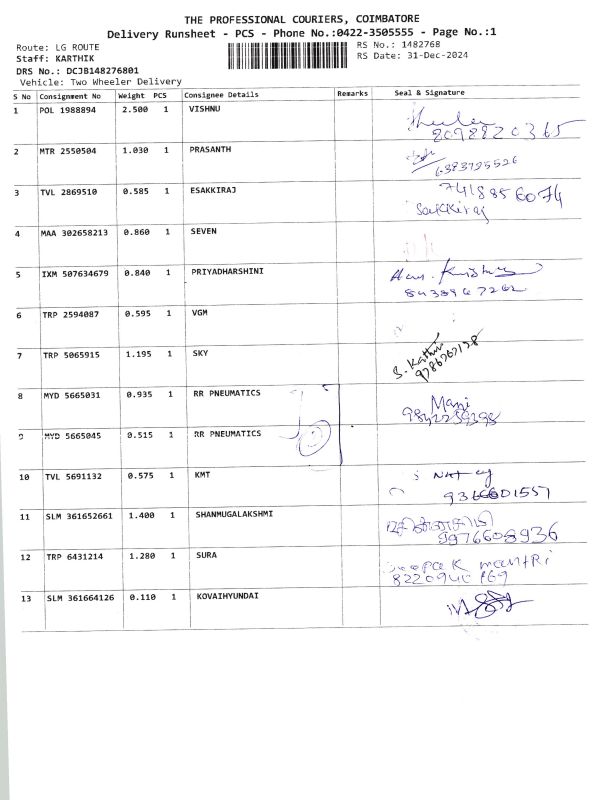 THE PROFESSIONAL COURIERS, COIMBATORE
Delivery Runsheet - PCS - Phone No.:0422-3505555 - Page No.:1
Route: LG ROUTE
RS No.: 1482768
Staff: KARTHIK
RS Date: 31-Dec-2024
DRS No.: DCJB148276801
Vehicle: Two Wheeler Delivery
S No Consignment No Weight PCS Consignee Details Remarks Seal & Signature
1 POL 1988894 2.500 1 VISHNU
2 MTR 2550504 1.030 1 PRASANTH
6383795526
3 TVL 2869510 0.585 1 ESAKKIRAJ 7418856074
Sakkiraj
4 MAA 302658213 0.860 1 SEVEN
5 IXM 507634679 0.840 1 PRIYADHARSHINI
6 TRP 2594087 0.595 1 VGM
7 TRP 5065915 1.195 1 SKY
8 MYD 5665031 0.935 1 RR PNEUMATICS Mani
9 MYD 5665045 0.515 1 RR PNEUMATICS
10 TVL 5691132 0.575 1 KMT
9366601557
11 SLM 361652661 1.400 1 SHANMUGALAKSHMI
9976608936
12 TRP 6431214 1.280 1 SURA
13 SLM 361664126 0.110 1 KOVAIHYUNDAI